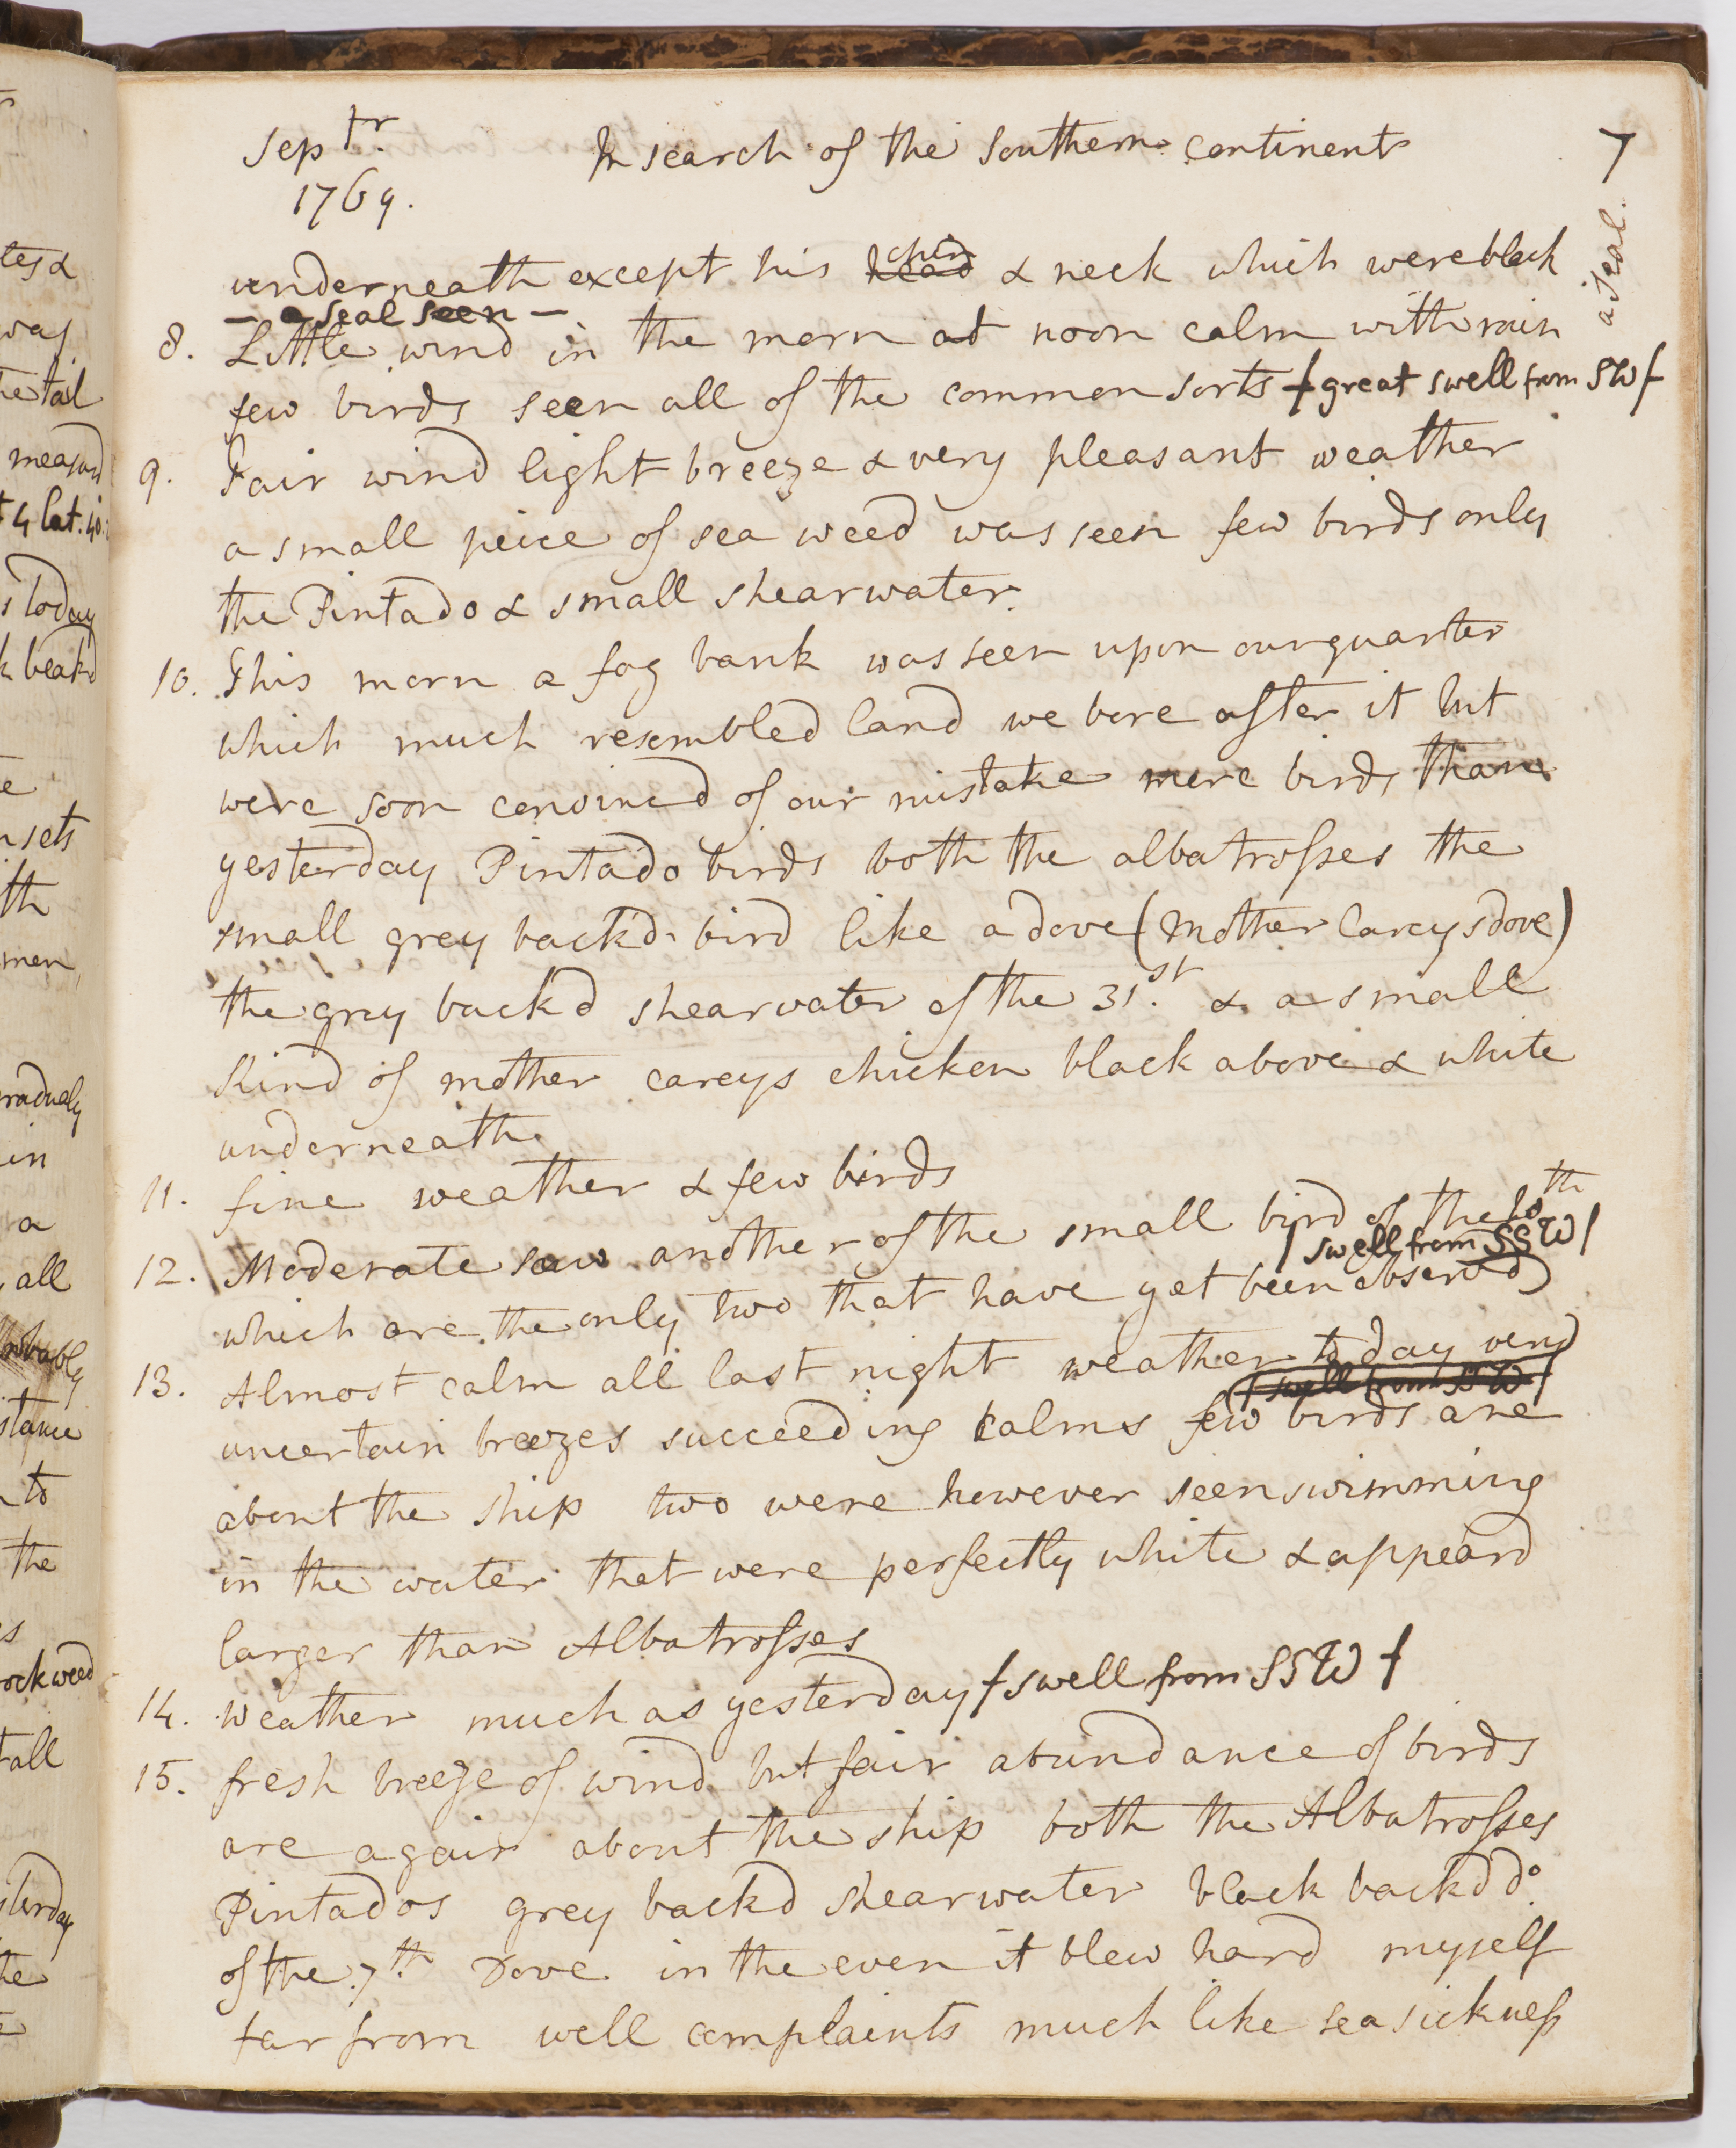 Septr. In search of the Southern continent 7
1769.
a seal.
underneath except his head chin & neck which were black
— a seal seen —
8. Little wind in the morn at noon calm with rain
few birds seen all of the common sorts / great swell from SW /
9. Fair wind light breeze & very pleasant weather
a small peice of sea weed was seen few birds only
the Pintado & small shearwater.
10. This morn a fog bank was seen upon our quarter
which much resembled land we bore after it but
were soon convined of our mistake more birds than
yesterday Pintado birds both the albatrosses the
small grey back'd bird like a dove (Mother Careys dove)
the grey back'd shearwater of the 31st. & a small
kind of mother careys chicken black above & white
underneath
11. fine weather & few birds
12. Moderate saw another of the small bird of the 10th
/ swell from SSW /
which are the only two that have yet been observd
13. Almost calm all last night weather to day very
/ swell from SSW /
uncertain breezes succeeding calms few birds are
about the ship two were however seen swimming
in the water that were perfectly white & appeard
larger than Albatrosses
14. Weather much as yesterday / swell from SSW /
15. fresh breeze of wind but fair abundance of birds
are again about the ship both the Albatrosses
Pintados grey backd shearwater black backd do.
of the 7th. Dove in the even it blew hard myself
far from well complaints much like sea sickness
tes &
way
he tail
measurd
s today
k beakd
e
n sets
th
men
gradualy
in
a
all
probably
stance
to
the
s
rock weed
all
sterday
he